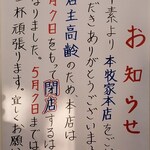 お知らせ
平素より本牧家本店をご
だき ありがとうございます
店主高齢のため、本店は
月7日をもって閉店するは
なりました。5月7日までは
杯頑張ります。宜しくお願